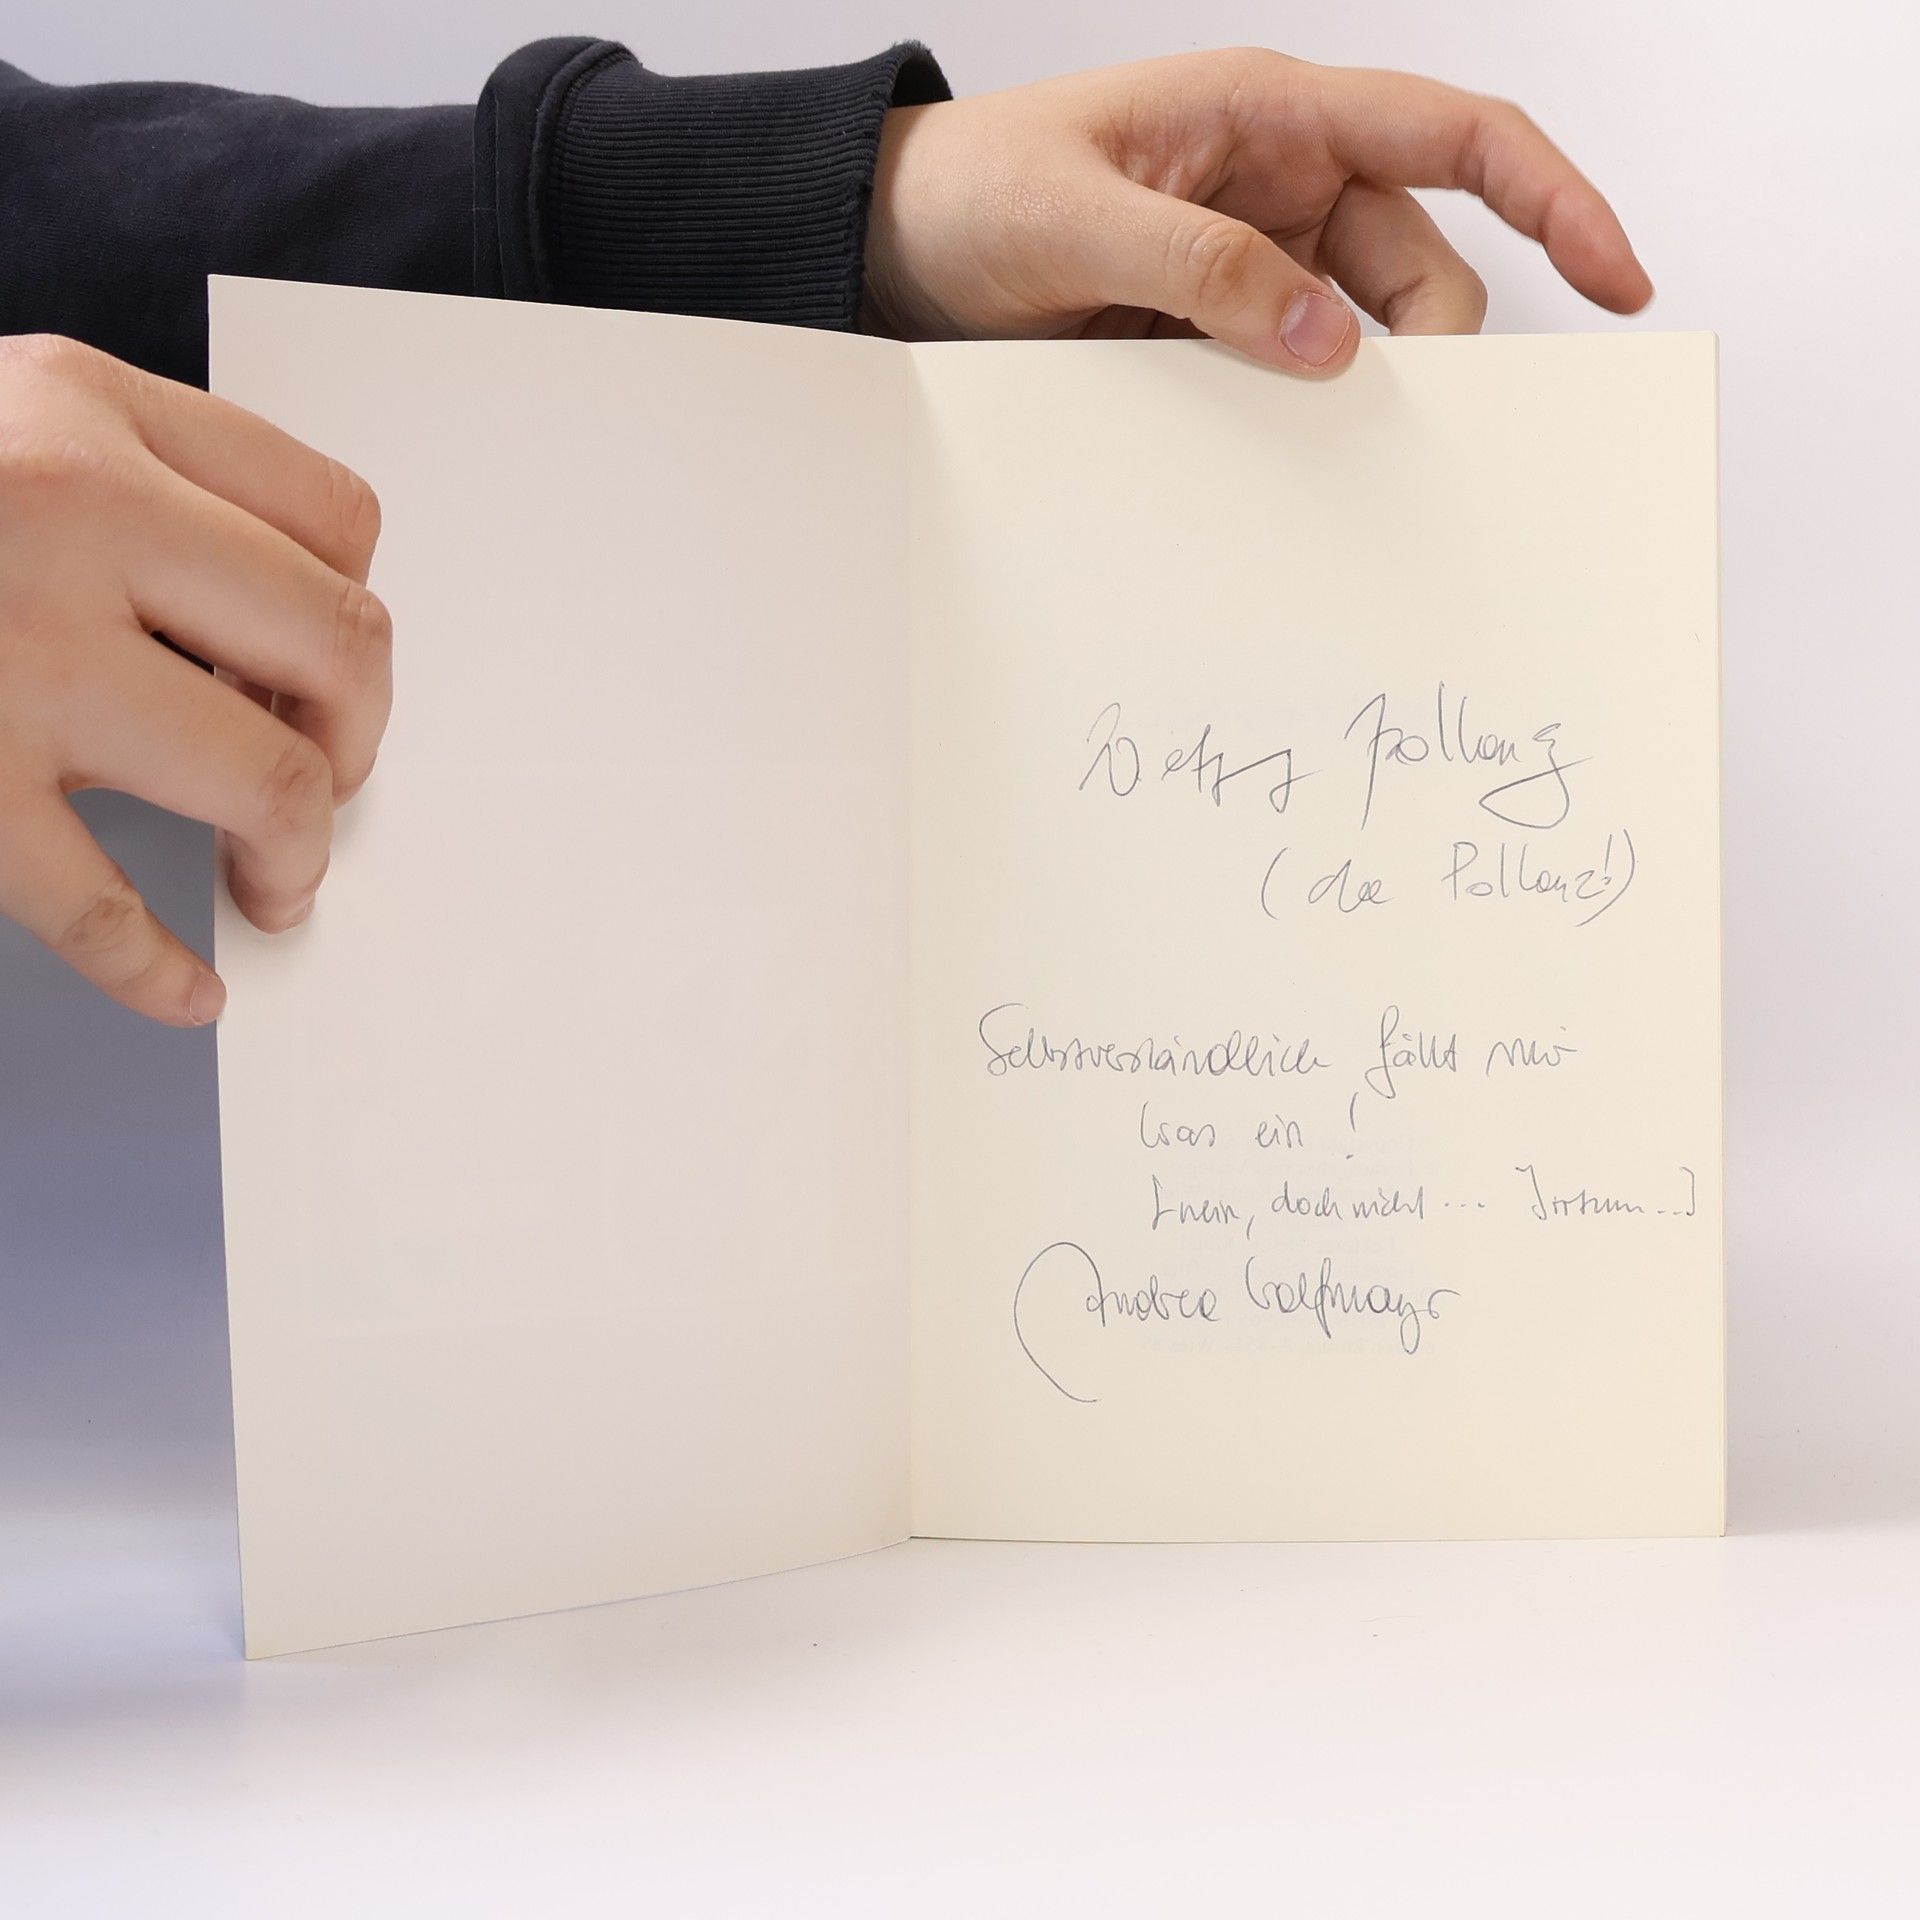 Pollanz
(die Pollanz!)
Selbstverständlich fällt mir
was ein!
[nein, doch nicht ... Irrtum...]
Andrea Wolfmayr